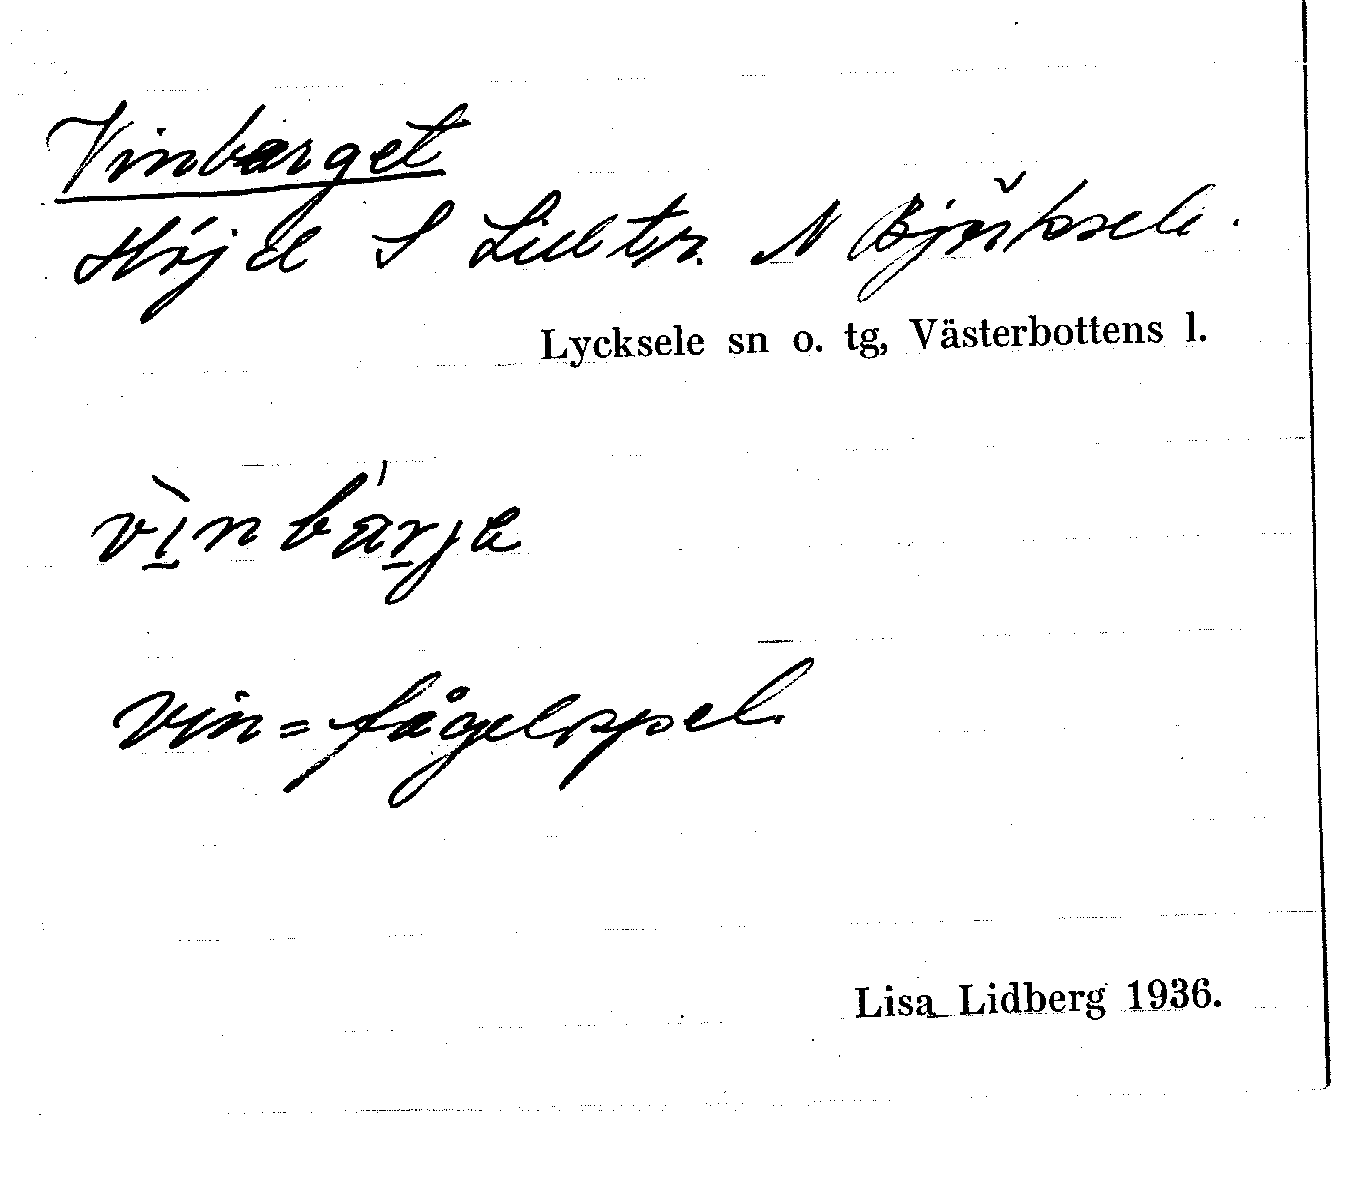 Vinbärget
Höjd S Lidtr. N Björksele.
Lycksele sn o. tg, Västerbottens l.
vìnbárja
vin = fågelspel.
Lisa Lidberg 1936.